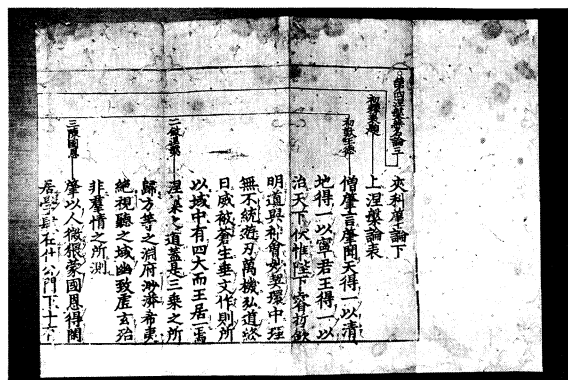 第四涅槃無名論三
夾科肇論下
初釋表題
上涅槃論表
初歎王德
僧肇言肇聞天得一以清
地得一以寧君王得一以
治天下伏惟陛下睿哲欽
明道與神會妙契環中理
無不統遊刃萬機弘道終
日威被蒼生垂文作則所
以域中有四大而王居一焉
二敘涅槃
涅槃之道蓋是三乘之所
歸方等之淵府渺漭希夷
絕視聽之域幽致虛玄殆
非羣情之所測
三陳國恩
肇以人微猥蒙國恩得閑
居學肆在什公門下十